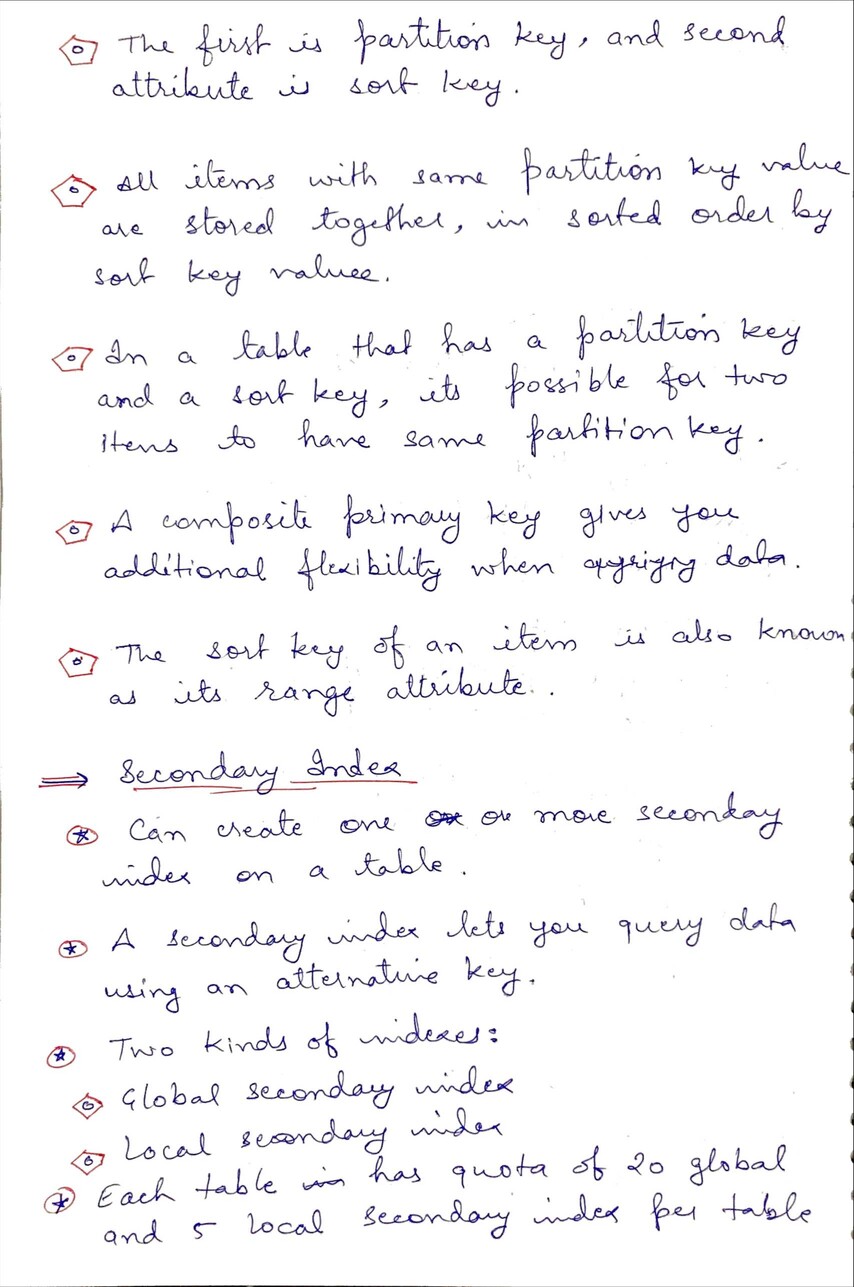 The first is partition key, and second
attribute is sort key.
All items with same partition key value
are stored together, in sorted order by
sort key valuee.
In a table that has a partition key
and a sort key, its possible for two
itens to have same partition key.
A composite primary key gives you
additional flexibility when data.
The sort key of an item is also known
as its range attribute..
⇒ Secondary Index
Can create one or more seconday
index on a table.
A secondary index lets you query data
using an alternative key.
Two kinds of indexes:
Global secondary index
Local secondary index
Each table has quota of 20 global
and 5 local secondary index per table